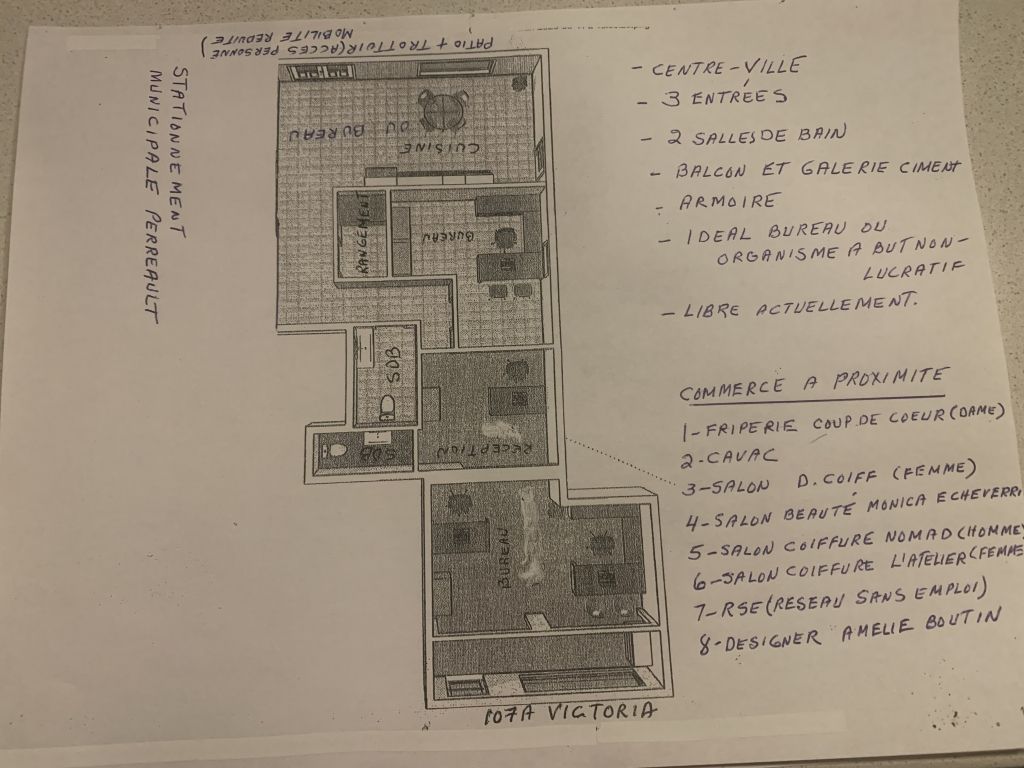 PATIO + TROTTOIR (ACCES PERSONNE
MOBILITE REDUITE)
STATIONNEMENT
MUNICIPALE PERREAULT
CUISINE
DU BUREAU
RANGEMENT
BUREAU
SDB
SDB
RECEPTION
BUREAU
107A VICTORIA
- CENTRE-VILLE
- 3 ENTRÉES
- 2 SALLES DE BAIN
- BALCON ET GALERIE CIMENT
- ARMOIRE
- IDEAL BUREAU OU
ORGANISME A BUT NON-
LUCRATIF
- LIBRE ACTUELLEMENT.
COMMERCE A PROXIMITE
1-FRIPERIE COUP DE COEUR (DAME)
2-CAVAC
3-SALON D. COIFF (FEMME)
4-SALON BEAUTÉ MONICA ECHEVERRI
5-SALON COIFFURE NOMAD (HOMME)
6-SALON COIFFURE L'ATELIER (FEMME
7-RSE (RESEAU SANS EMPLOI)
8-DESIGNER AMELIE BOUTIN